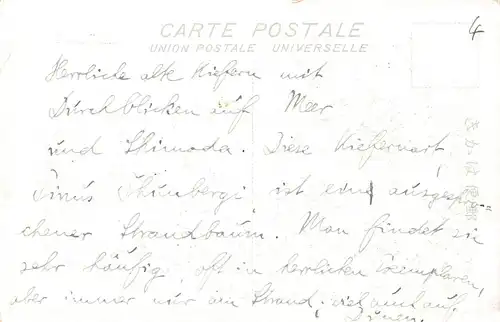 CARTE POSTALE
UNION POSTALE UNIVERSELLE
4
Herrliche alte Kiefern mit
Durchblicken auf Meer
und Shimoda. Diese Kiefernart,
Pinus Thunbergi, ist ein ausgespro-
chener Strandbaum. Man findet sie
sehr häufig, oft in herrlichen Exemplaren,
aber immer nur am Strand, viel auch auf
Dünen.